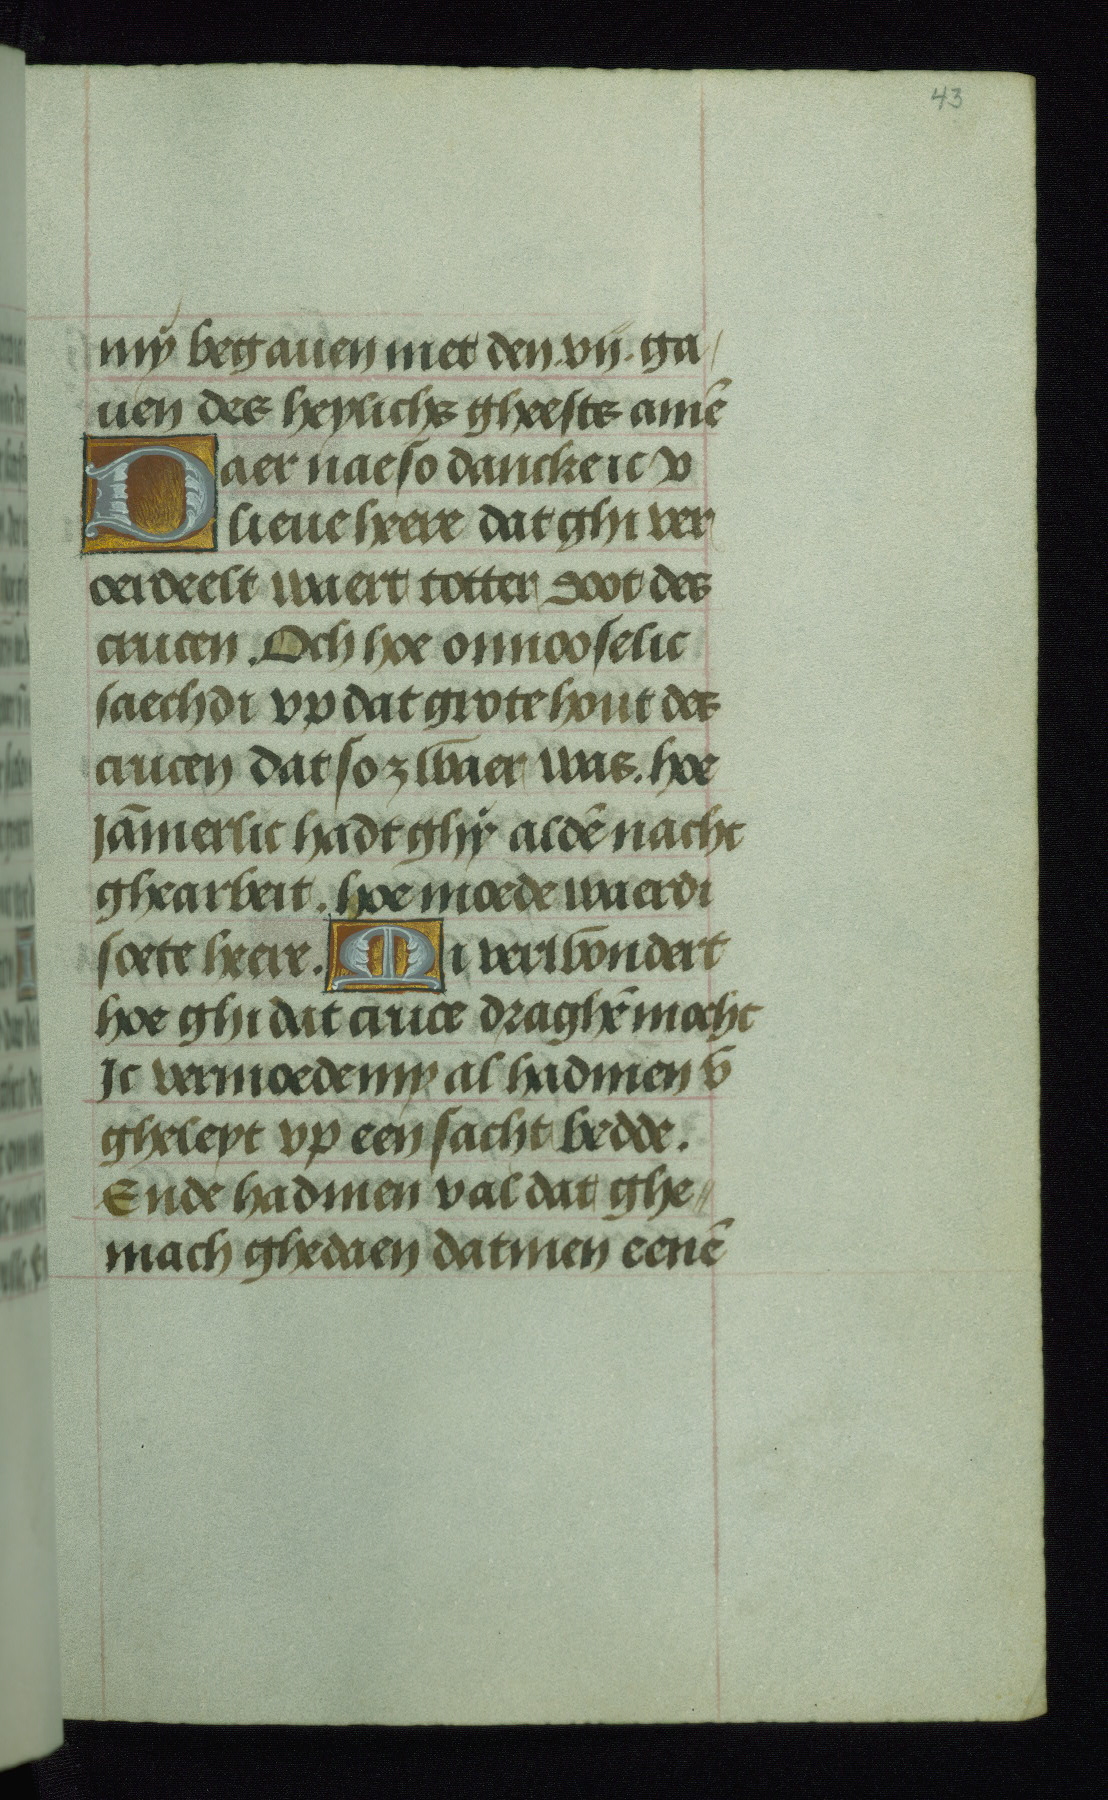 43
mÿ begauen met den .vij. ga/
uen des heylichs gheests amē
Daer nae so dancke ic v
lieue heere dat ghi ver
oerdeelt waert totter doot des
crucen . Och hoe onnooselic
saechdi vp dat grote hout des
crucen dat so zwaer was. hoe
Jāmerlic hadt ghÿ aldē nacht
ghearbeit . hoe moede waerdi
soete heere. Mi verwondert
hoe ghi dat cruce draghē mocht
Jc vermoede my al hadmen v̄
gheleyt vp een sacht bedde.
Ende hadmen v al dat ghe//
mach ghedaen datmen eenē